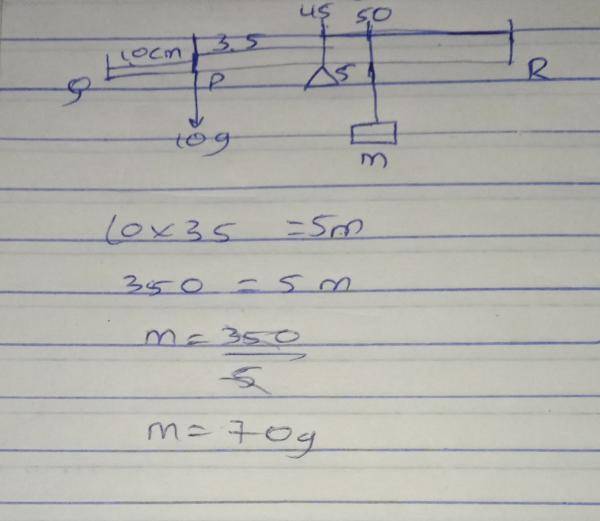 45 50
10cm 3.5 5
Q P R
10g
m
10x35 =5m
350 = 5m
m= 350
5
m= 70g